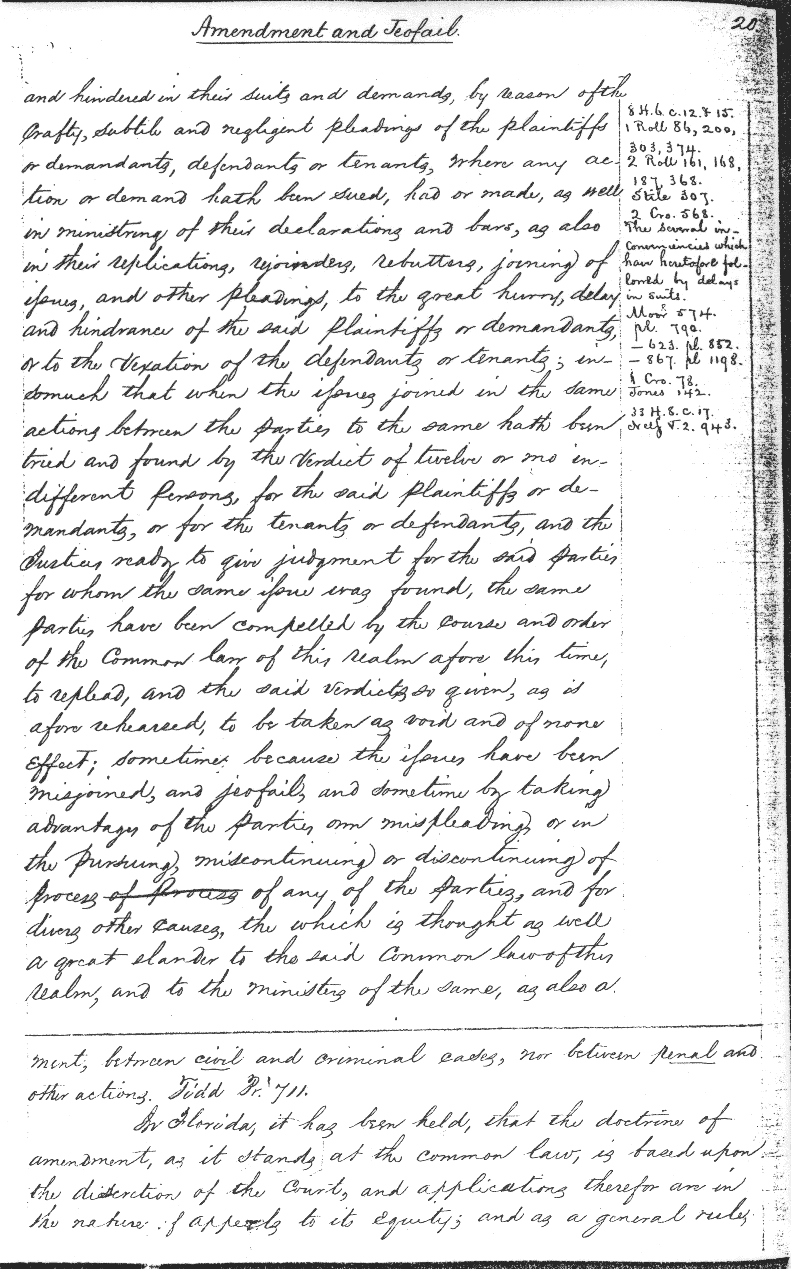 Amendment and Jeofail.
20.
and hindered in their suits and demands, by reason of the
Crafty, subtile and negligent pleadings of the plaintiffs
or demandants, defendants or tenants, where any ac-
tion or demand hath been sued, had or made, as well
in ministring of their declarations and bars, as also
in their replications, rejoinders, rebutters, joining of
issues, and other pleadings, to the great hurry, delay
and hindrance of the said plaintiffs or demandants,
or to the Vexation of the defendants or tenants; in-
somuch that when the issues joined in the same
actions between the Parties to the same hath been
tried and found by the Verdict of twelve or mo in-
different Persons, for the said plaintiffs or de-
mandants, or for the tenants or defendants, and the
Justices ready to give judgment for the said parties
for whom the same issue was found, the same
Parties have been compelled by the course and order
of the Common law of this realm afore this time,
to replead, and the said verdicts so given, as is
afore rehearsed, to be taken as void and of none
Effect; sometime because the issues have been
misjoined, and jeofail, and sometime by taking
advantages of the Parties own mispleading, or in
the Pursuing, miscontinuing or discontinuing of
process of Process of any of the Parties, and for
divers other causes, the which is thought as well
a great slander to the said Common law of this
realm, and to the ministers of the same, as also a
8 H. 6. c. 12. & 15.
1 Roll 86, 200,
303, 374.
2 Roll 161, 168,
187, 368.
Stile 307.
2 Cro. 568.
The several in-
conveniencies which
have heretofore fol-
lowed by delays
in suits.
Moor 574.
pl. 790.
— 623. pl. 852.
— 867. pl 1198.
1 Cro. 78.
Jones 142.
33 H. 8. c. 17.
2. 943.
ment, between civil and criminal cases, nor between penal and
other actions. Tidd Pr. 711.
In Florida, it has been held, that the doctrine of
amendment, as it stands at the common law, is based upon
the discretion of the Court, and applications therefor are in
the nature of appeals to its equity; and as a general rule,